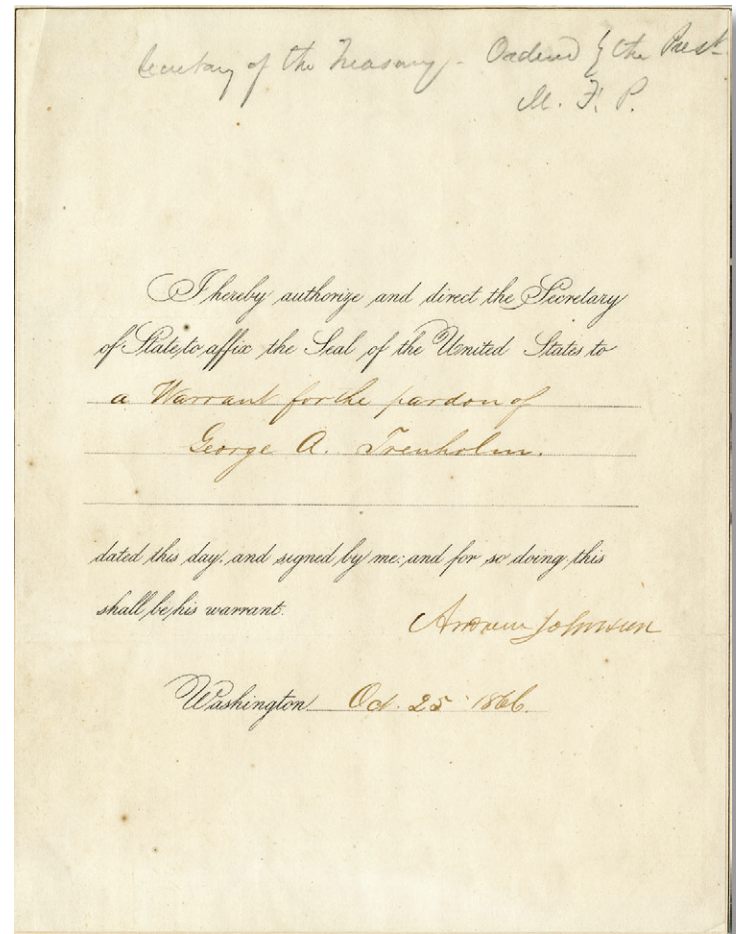 Secretary of the Treasury - Ordered by the Prest.
M. F. P.
I hereby authorize and direct the Secretary
of State, to affix the Seal of the United States to
a Warrant for the pardon of
George A. Trenholm.
dated this day, and signed by me; and for so doing this
shall be his warrant.
Andrew Johnson
Washington Oct. 25 1866.